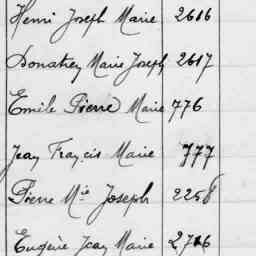 Henri Joseph Marie 2616
Donatien Marie Joseph 2617
Emile Pierre Marie 776
Jean François Marie 777
Pierre Mie Joseph 2258
Eugène Jean Marie 2716